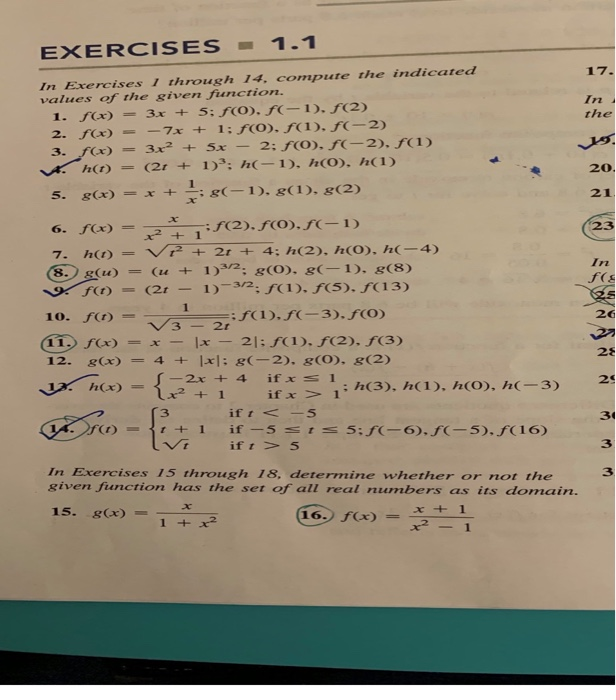 EXERCISES ■ 1.1
In Exercises 1 through 14, compute the indicated
values of the given function.
1. f(x) = 3x + 5; f(0), f(−1), f(2)
2. f(x) = −7x + 1; f(0), f(1), f(−2)
3. f(x) = 3x² + 5x − 2; f(0), f(−2), f(1)
4. h(t) = (2t + 1)³; h(−1), h(0), h(1)
5. g(x) = x + 1/x; g(−1), g(1), g(2)
6. f(x) = x/(x² + 1); f(2), f(0), f(−1)
7. h(t) = √(t² + 2t + 4); h(2), h(0), h(−4)
8. g(u) = (u + 1)^(3/2); g(0), g(−1), g(8)
9. f(t) = (2t − 1)^(−3/2); f(1), f(5), f(13)
10. f(t) = 1/√(3 − 2t); f(1), f(−3), f(0)
11. f(x) = x − |x − 2|; f(1), f(2), f(3)
12. g(x) = 4 + |x|; g(−2), g(0), g(2)
13. h(x) = { −2x + 4 if x ≤ 1
x² + 1 if x > 1 ; h(3), h(1), h(0), h(−3)
14. f(t) = { 3 if t < −5
t + 1 if −5 ≤ t ≤ 5; f(−6), f(−5), f(16)
√t if t > 5
In Exercises 15 through 18, determine whether or not the
given function has the set of all real numbers as its domain.
15. g(x) = x/(1 + x²)
16. f(x) = (x + 1)/(x² − 1)
17.
In
the
19.
20.
21
23
In
f(g
25
26
27
28
29
3
3